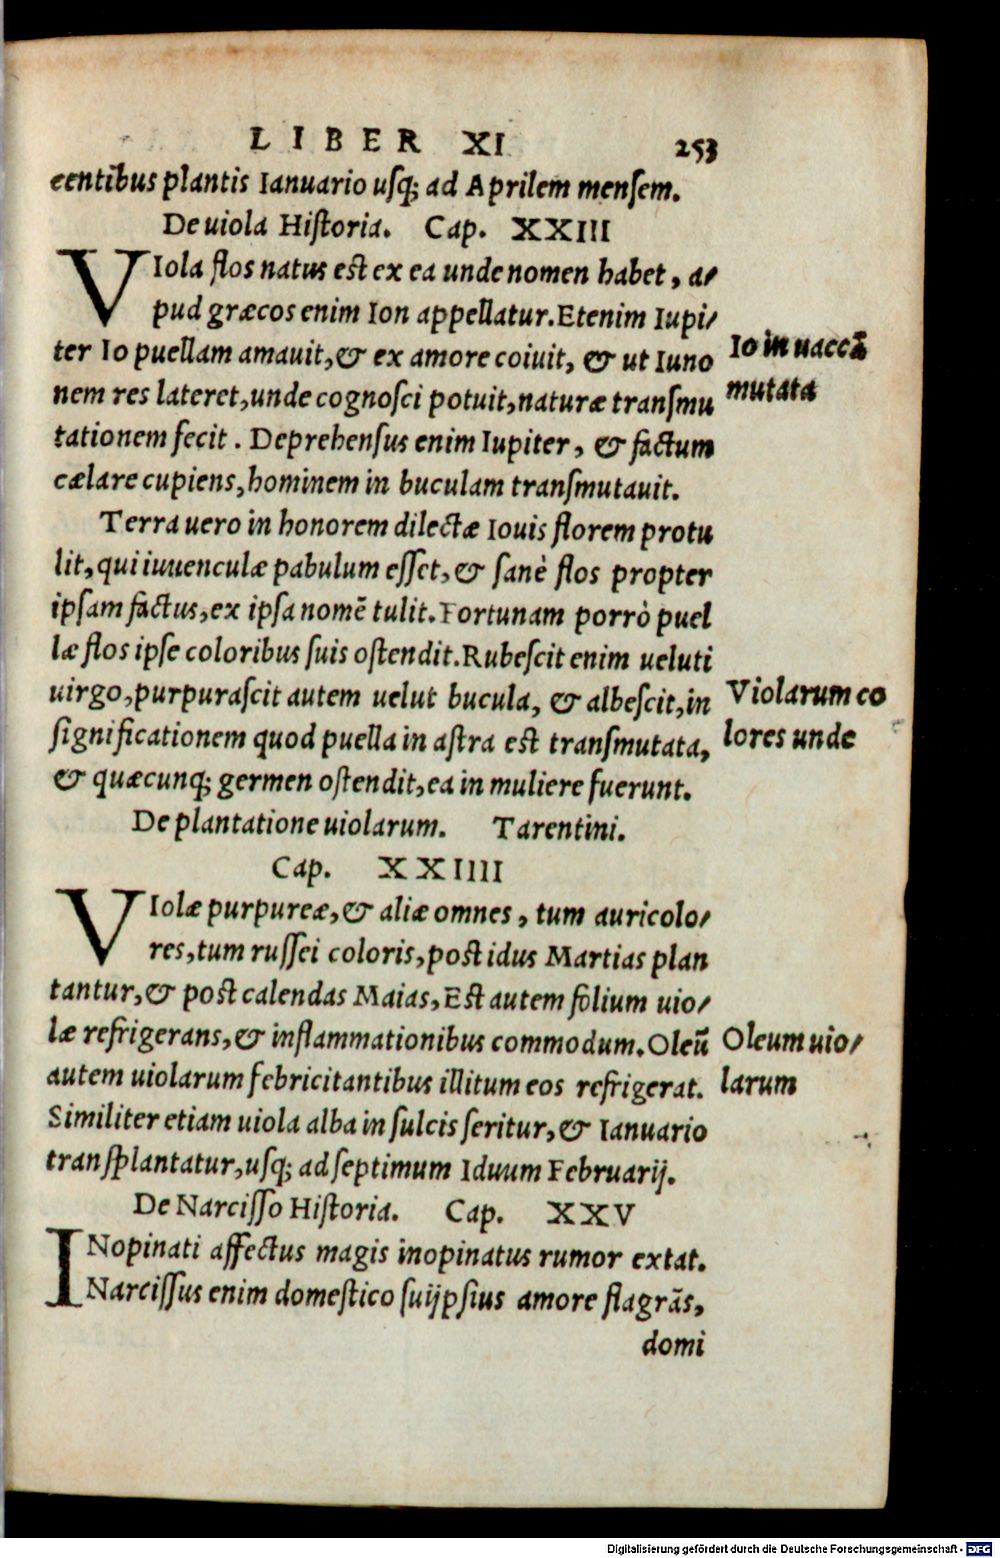 LIBER XI 253
centibus plantis Ianuario usq; ad Aprilem mensem.
De uiola Historia. Cap. XXIII
VIola flos natus est ex ea unde nomen habet, a/
pud græcos enim Ion appellatur. Etenim Iupi/
ter Io puellam amauit, & ex amore coiuit, & ut Iuno
nem res lateret, unde cognosci potuit, naturæ transmu
tationem fecit. Deprehensus enim Iupiter, & factum
cælare cupiens, hominem in buculam transmutauit.
Io in uaccã
mutata
Terra uero in honorem dilectæ Iouis florem protu
lit, qui iuuenculæ pabulum esset, & sanè flos propter
ipsam factus, ex ipsa nomẽ tulit. Fortunam porrò puel
læ flos ipse coloribus suis ostendit. Rubescit enim ueluti
uirgo, purpurascit autem uelut bucula, & albescit, in
significationem quod puella in astra est transmutata,
& quæcunq; germen ostendit, ea in muliere fuerunt.
Violarum co
lores unde
De plantatione uiolarum. Tarentini.
Cap. XXIIII
VIolæ purpureæ, & aliæ omnes, tum auricolo/
res, tum russei coloris, post idus Martias plan
tantur, & post calendas Maias, Est autem folium uio/
læ refrigerans, & inflammationibus commodum. Oleũ
autem uiolarum febricitantibus illitum eos refrigerat.
Similiter etiam uiola alba in sulcis seritur, & Ianuario
transplantatur, usq; ad septimum Iduum Februarij.
Oleum uio/
larum
De Narcisso Historia. Cap. XXV
INopinati affectus magis inopinatus rumor extat.
Narcissus enim domestico suijpsius amore flagrãs,
domi
Digitalisierung gefördert durch die Deutsche Forschungsgemeinschaft - DFG